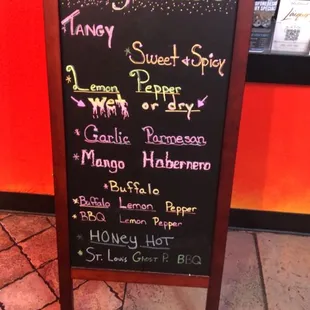 TANGY
* Sweet & Spicy
* Lemon Pepper
wet or dry
* Garlic Parmesan
* Mango Habernero
* Buffalo
* Buffalo Lemon Pepper
* BBQ Lemon Pepper
* HONEY HOT
* ST. LOUIS GHOST P. BBQ